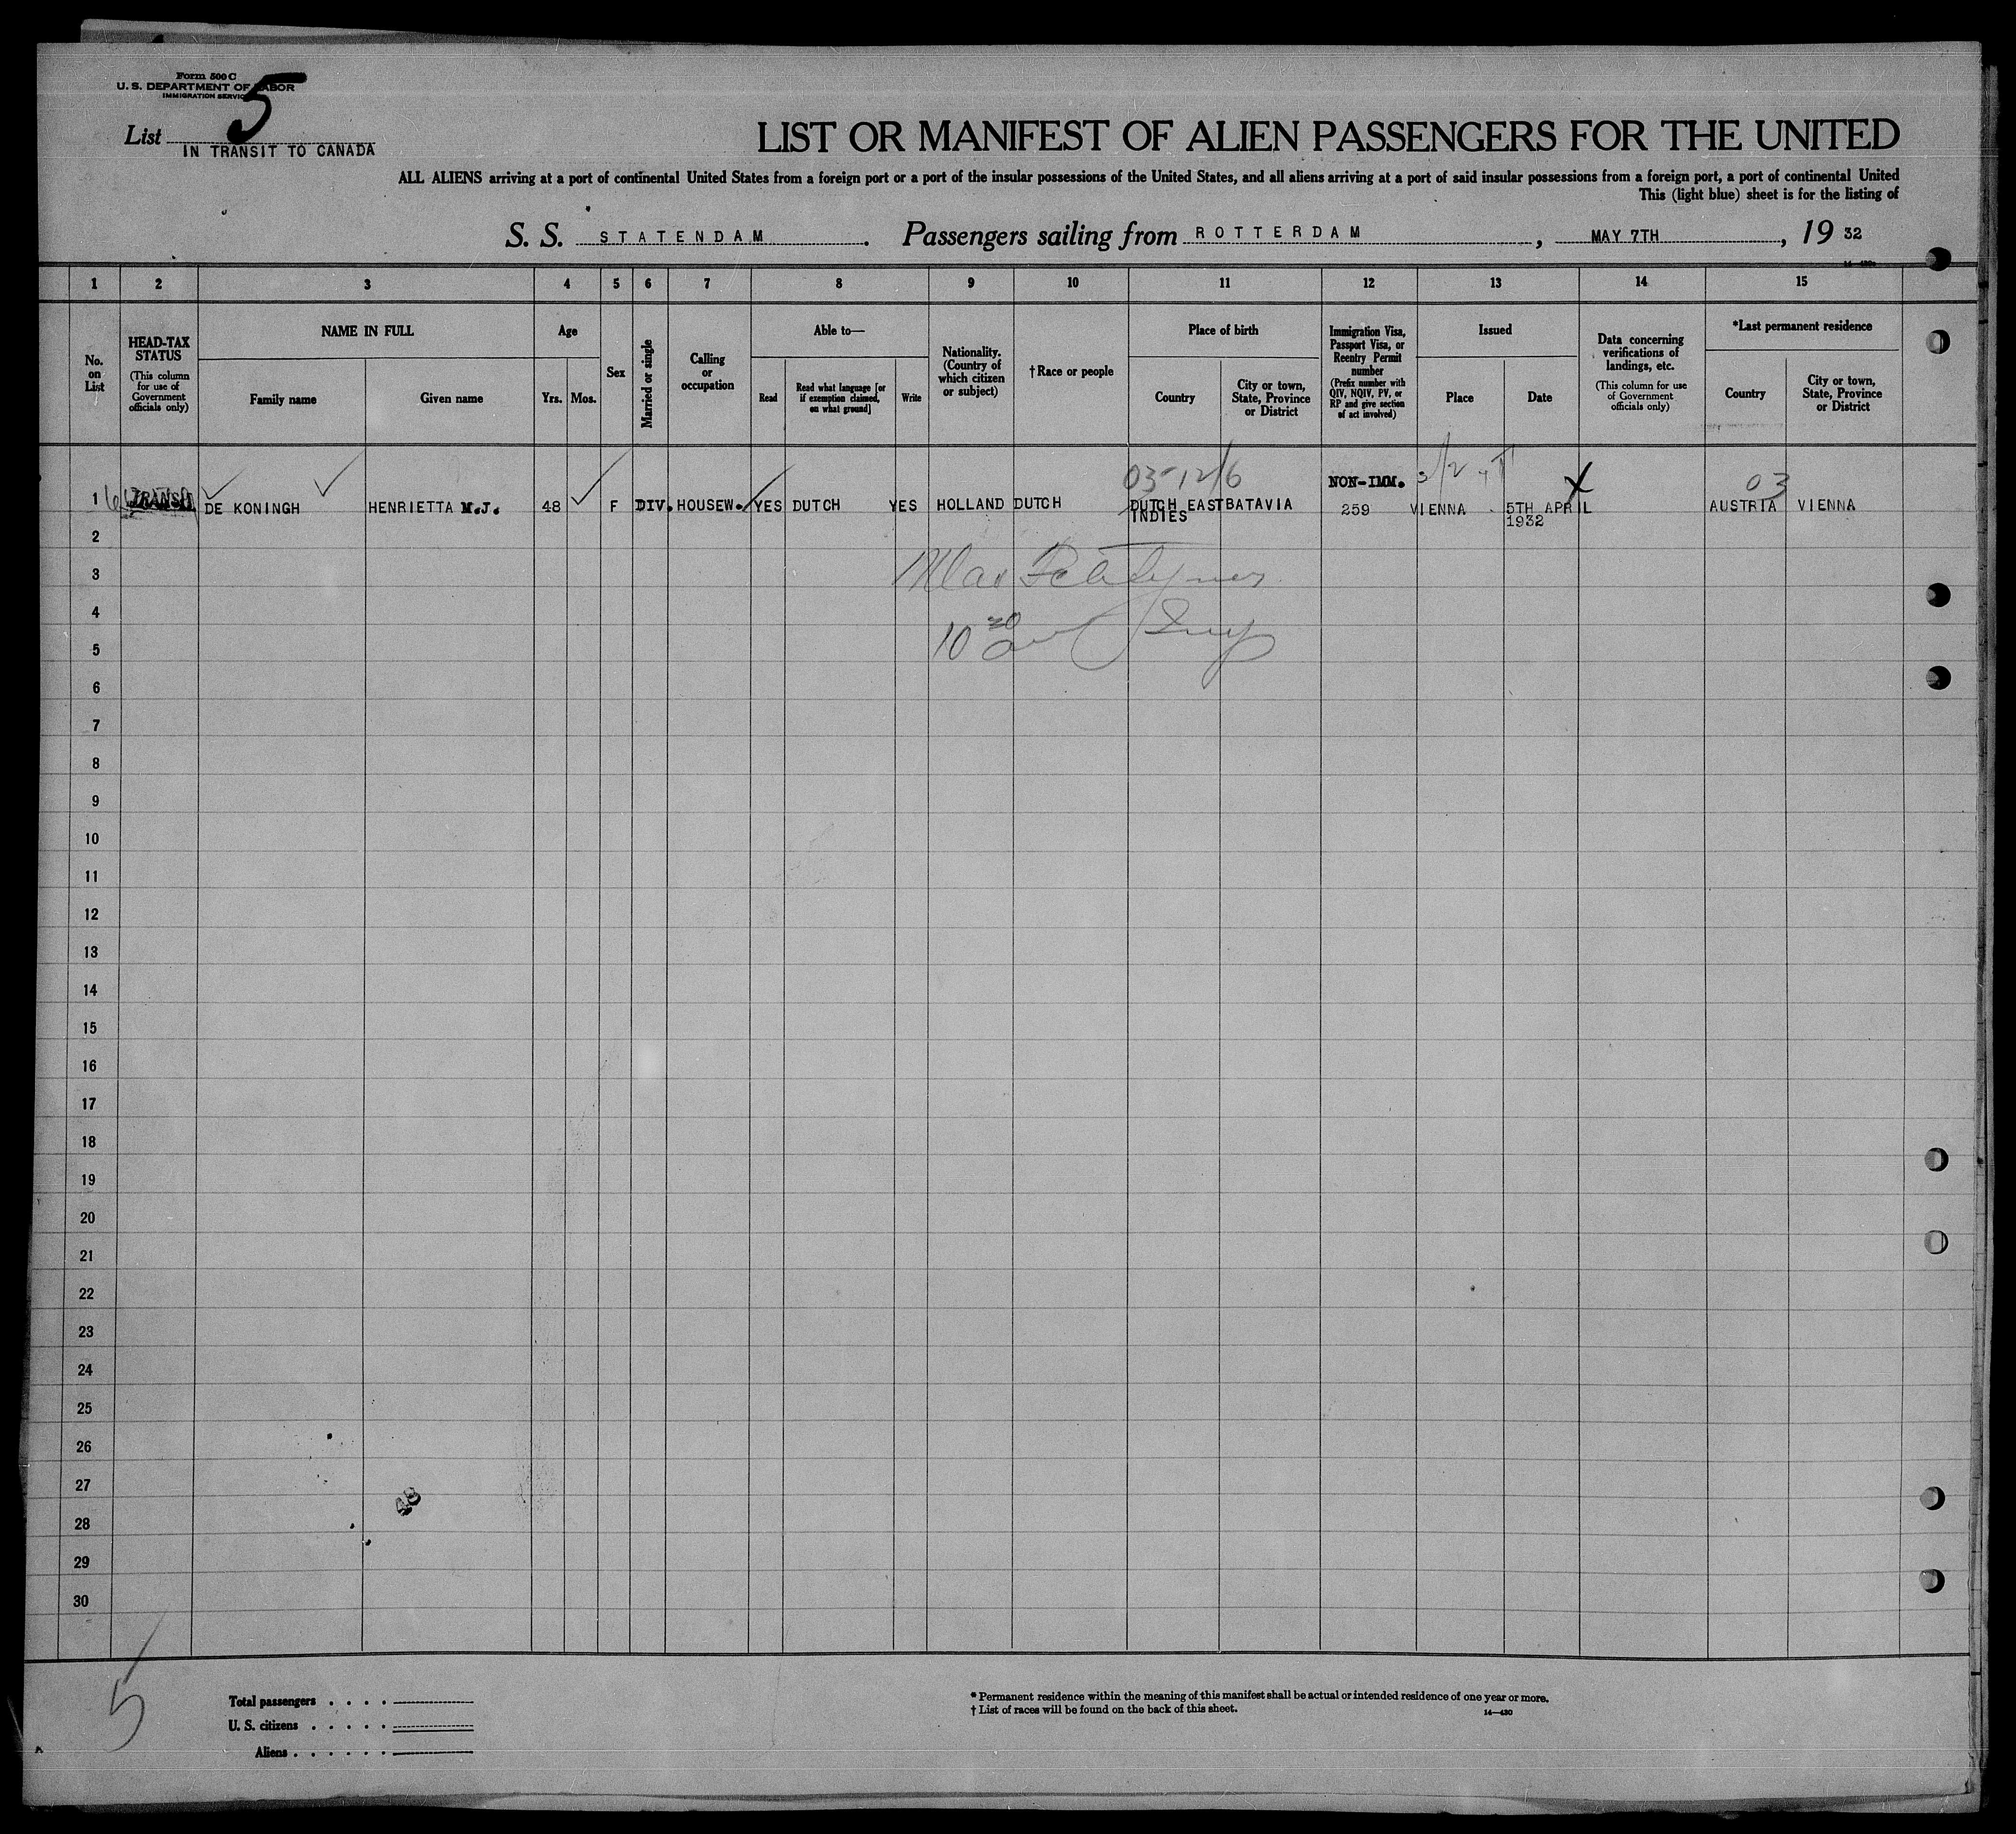 Form 500 C
U. S. DEPARTMENT OF LABOR
IMMIGRATION SERVICE
List 5
IN TRANSIT TO CANADA
LIST OR MANIFEST OF ALIEN PASSENGERS FOR THE UNITED
ALL ALIENS arriving at a port of continental United States from a foreign port or a port of the insular possessions of the United States, and all aliens arriving at a port of said insular possessions from a foreign port, a port of continental United
This (light blue) sheet is for the listing of
S. S. STATENDAM. Passengers sailing from ROTTERDAM, MAY 7TH, 19 32
1 2 3 4 5 6 7 8 9 10 11 12 13 14 15
No. on List
HEAD-TAX STATUS
(This column for use of Government officials only)
NAME IN FULL
Family name
Given name
Age
Yrs.
Mos.
Sex
Married or single
Calling or occupation
Able to—
Read
Read what language [or if exemption claimed, on what ground]
Write
Nationality. (Country of which citizen or subject)
†Race or people
Place of birth
Country
City or town, State, Province or District
Immigration Visa, Passport Visa, or Reentry Permit number
(Prefix number with QIV, NQIV, PV, or RP and give section of act involved)
Issued
Place
Date
Data concerning verifications of landings, etc.
(This column for use of Government officials only)
*Last permanent residence
Country
City or town, State, Province or District
03-12/6
NON-IMM.
03
1 TRANSIT DE KONINGH HENRIETTA M.J. 48 F DIV. HOUSEW. YES DUTCH YES HOLLAND DUTCH DUTCH EAST BATAVIA 259 VIENNA 5TH APRIL AUSTRIA VIENNA
INDIES 1932
2
3
4
5
6
7
8
9
10
11
12
13
14
15
16
17
18
19
20
21
22
23
24
25
26
27
28
29
30
5
Total passengers
U. S. citizens
Aliens
* Permanent residence within the meaning of this manifest shall be actual or intended residence of one year or more.
† List of races will be found on the back of this sheet.
14—430